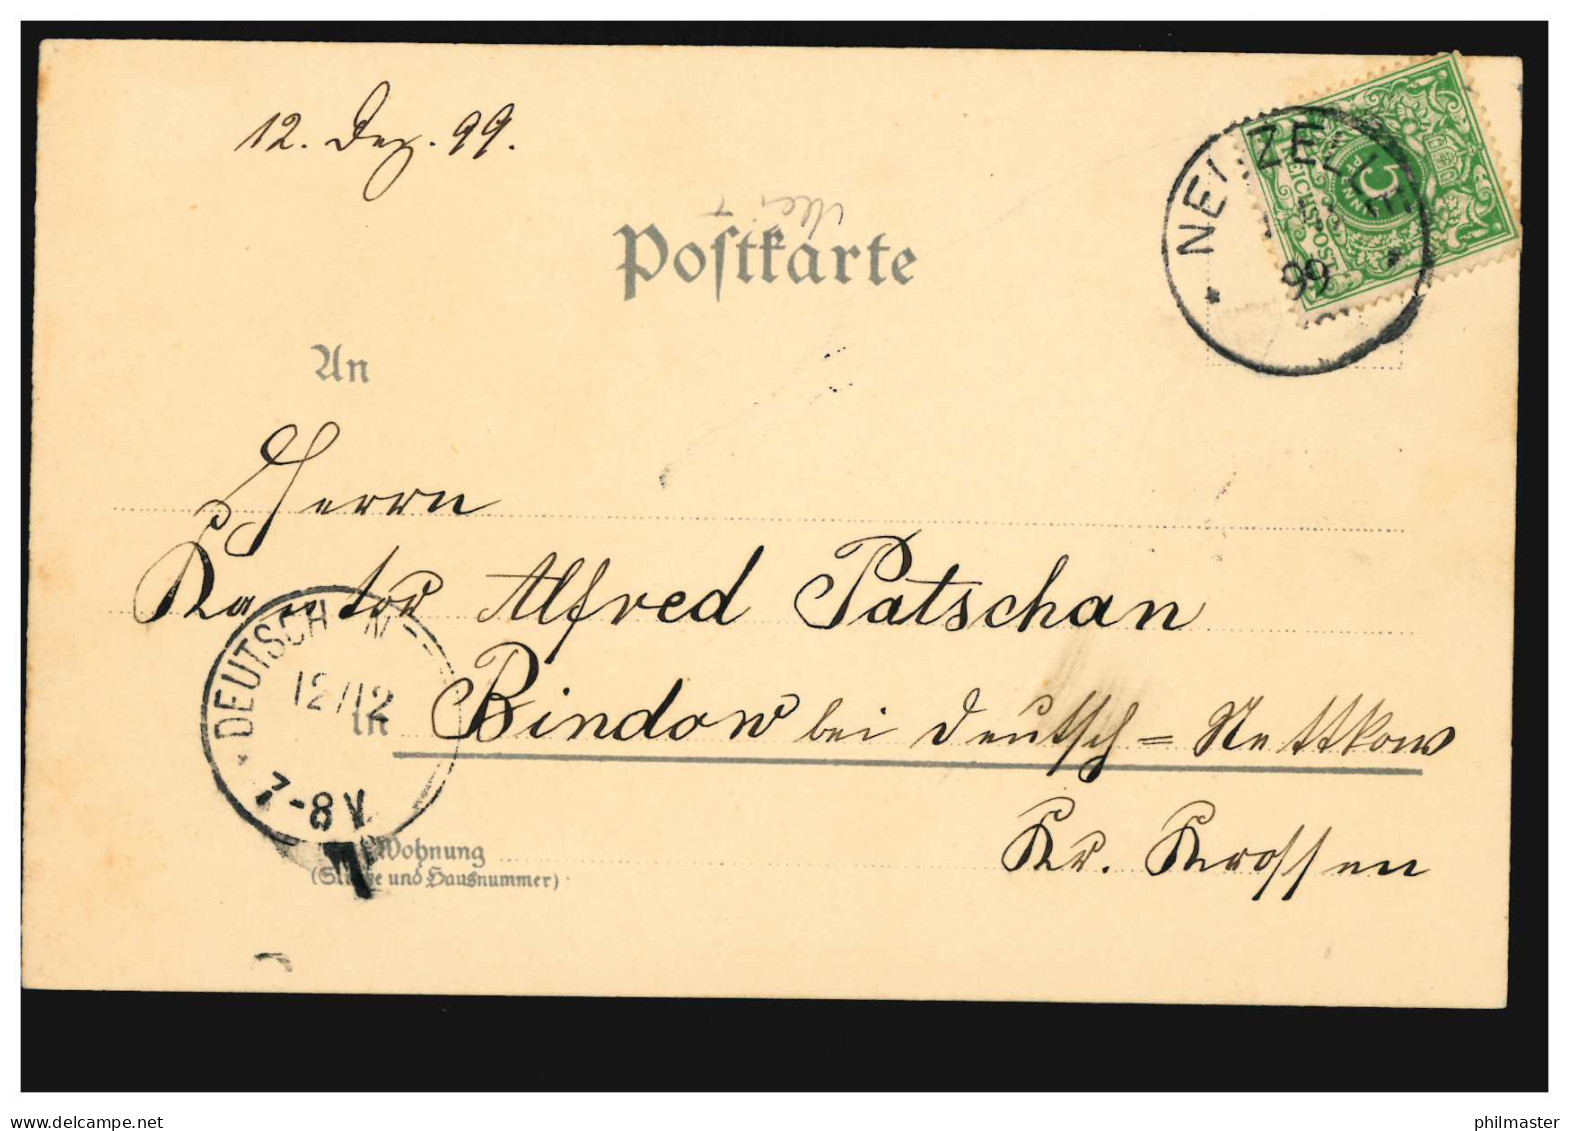 12. Dez. 99.
NEUZELLE
99
5
REICHSPOST
Postkarte
An
Herrn
Kantor Alfred Patschan
DEUTSCH N
12/12
7-8 V
in
Bindow bei Deutsch-Nettkow
Kr. Krossen
Wohnung
(Straße und Hausnummer)
delcampe.net
philmaster